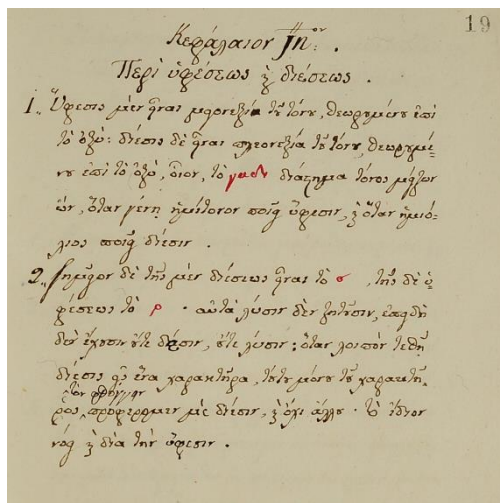 19
Κεφάλαιον Ιηον.
Περὶ ὑφέσεως ϗ διέσεως.
1,, Ὕφεσις μὲν εἶναι μιονεξία τοῦ τόνου, θεωρουμένου ἐπὶ
τὸ ὀξύ: δίεσις δὲ εἶναι πλεονεξία τοῦ τόνου, θεωρουμέ-
νου ἐπὶ τὸ ὀξύ, οἷον, τὸ διάστημα τόνος μείζων
ὤν, ὅταν γένῃ ἡμίτονον ποιεῖ ὕφεσιν, ϗ ὅταν ἡμιό-
λιος ποιεῖ δίεσιν.
2,, Σημεῖον δὲ τῆς μὲν διέσεως εἶναι τὸ σ, τῆς δὲ ὑ-
φέσεως τὸ ρ. αὐτὰ λύσιν δὲν ζητοῦσιν, ἐπειδὴ
δὲν ἔχουσιν οὔτε δέσιν, οὔτε λύσιν: ὅταν λοιπὸν τεθῇ
δίεσις εἰς ἕνα χαρακτῆρα, τούτου μόνου τοῦ χαρακτῆ-
τὸν φθόγγον
ρος προφέρομεν μὲ δίεσιν, ϗ ὄχι ἄλλου. τὸ ἴδιον
νόει ϗ διὰ τὴν ὕφεσιν.